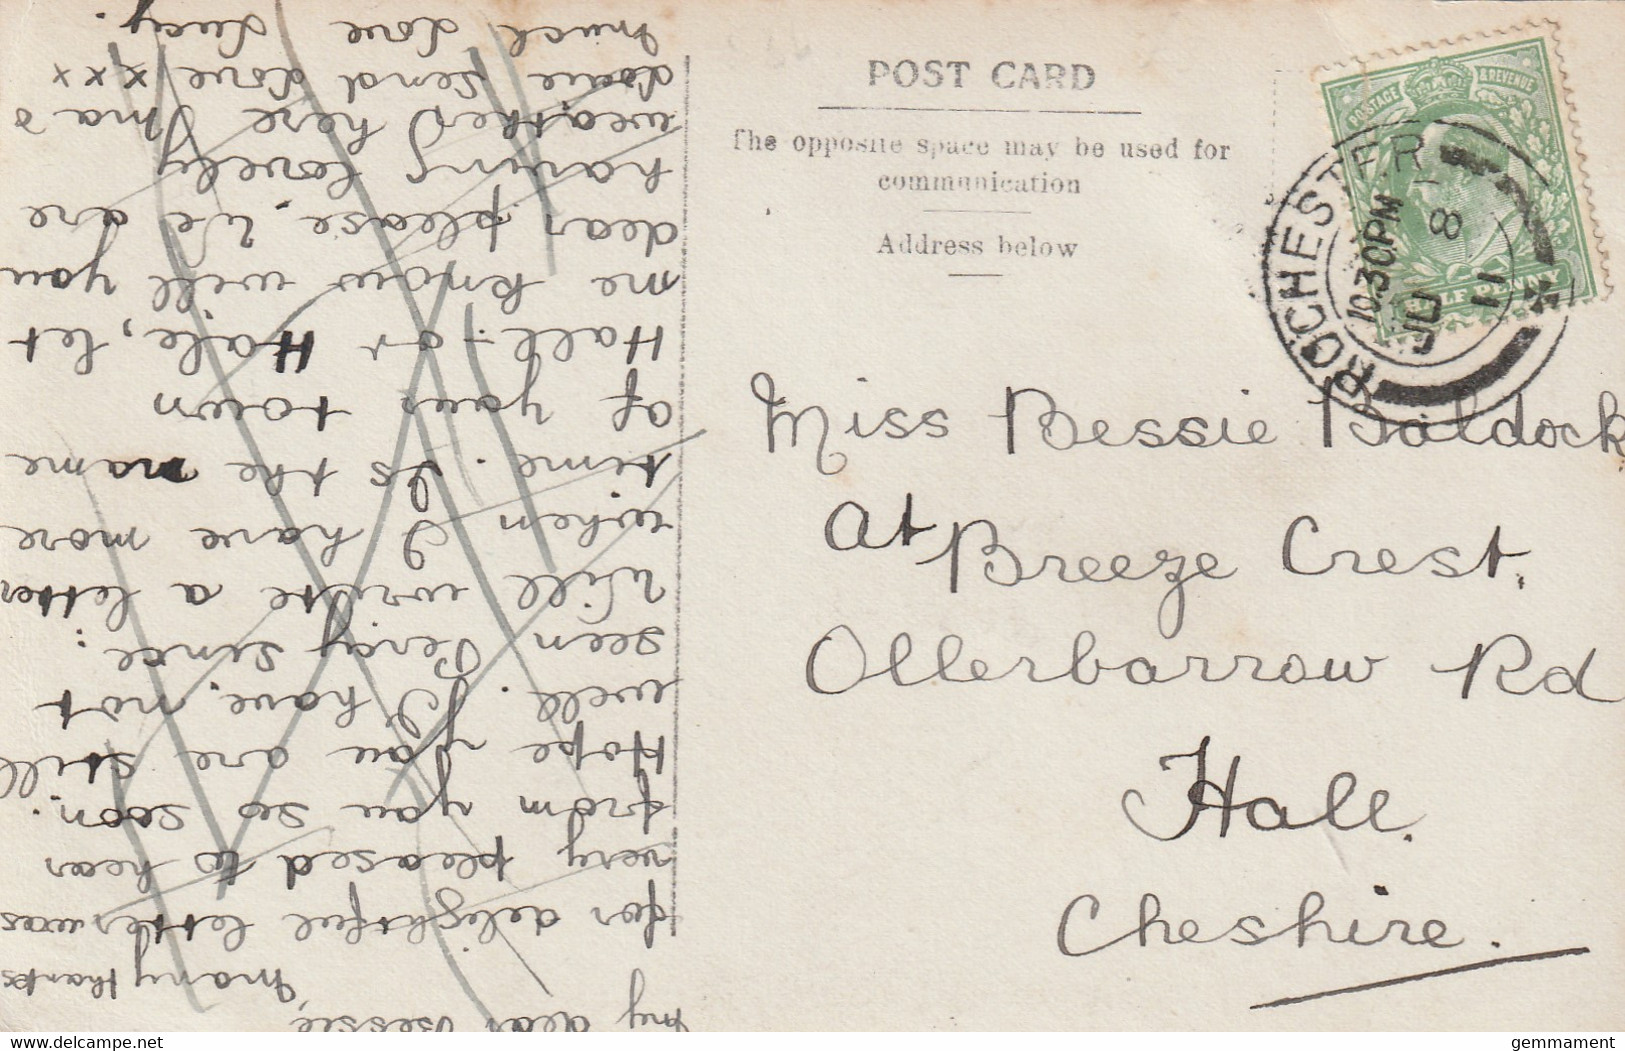 POST CARD
The opposite space may be used for
communication
Address below
POSTAGE & REVENUE
HALF PENNY
ROCHESTER
10.30PM
JU 8
11
Miss Bessie Baldock
At Breeze Crest,
Ollerbarrow Rd
Hall.
Cheshire.
My dear Bessie,
Many thanks
for delightful letter, was
very pleased to hear
from you so soon.
Hope you are still
well. I have not
seen Percy since.
Will write a letter
when I have more
time. Is the name
of your town
Hall or Hale, let
me know will you
dear please. We are
having lovely
weather here Ma &
Louie send love xxx
Much love Lucy.
gemmament